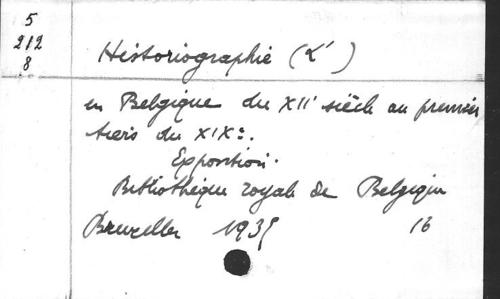 5
212
8
Historiographie (L')
en Belgique du XIIe siècle au premier
tiers du XIXe.
Exposition.
Bibliothèque royale de Belgique
Bruxelles 1935 16